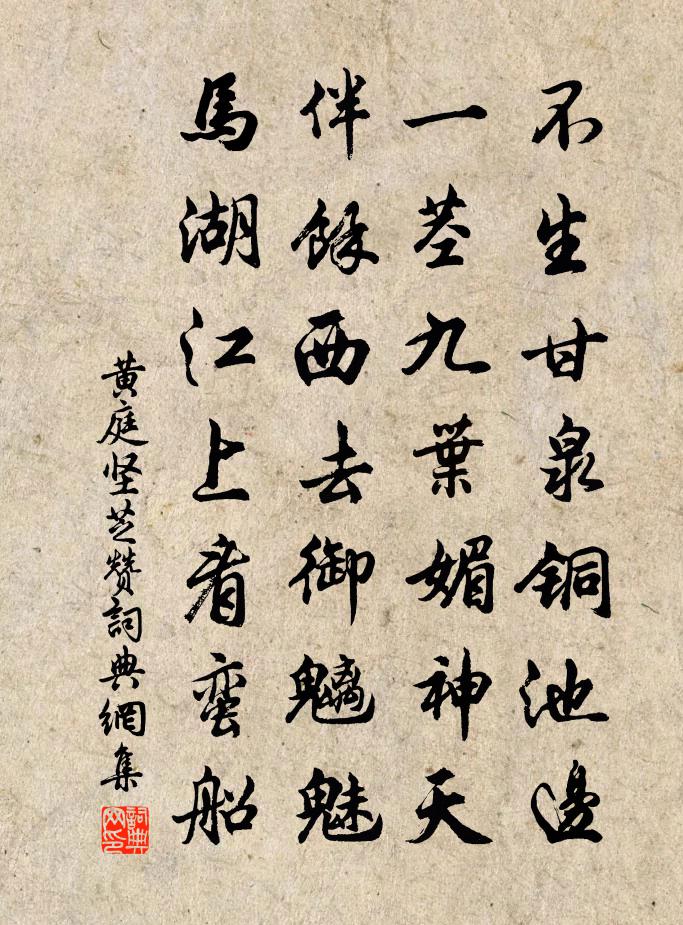 不生甘泉铜池邊
一茎九葉媚神天
伴餘西去御魑魅
馬湖江上看蛮船
黄庭坚芝赞詞典網集
詞典網印